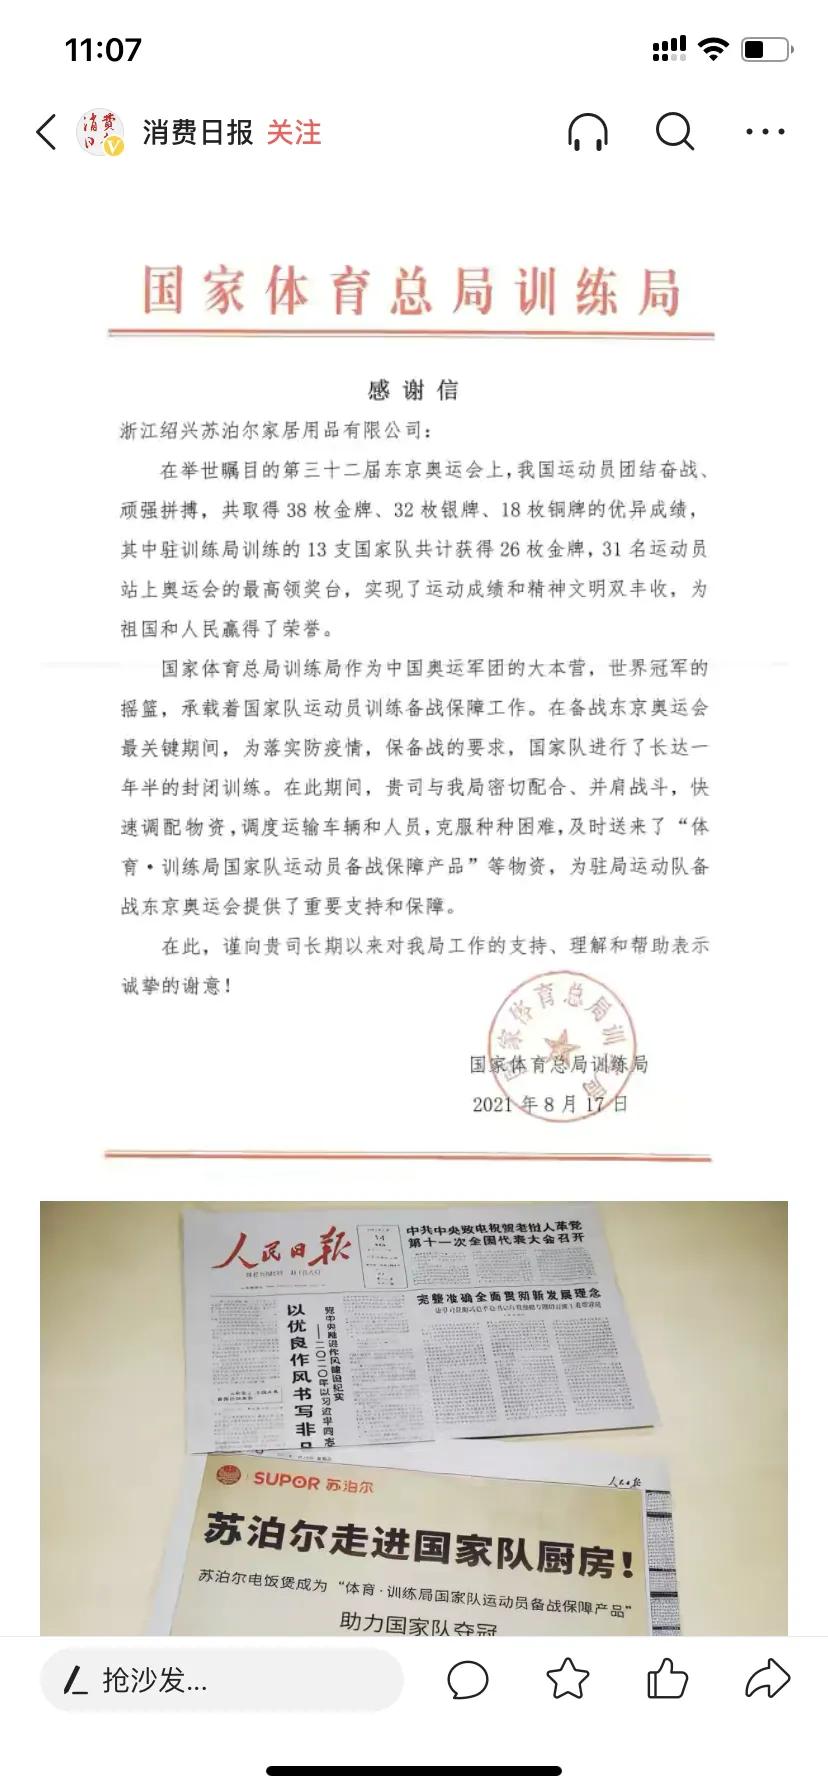 11:07
消费日报 关注
国家体育总局训练局
感谢信
浙江绍兴苏泊尔家居用品有限公司：
在举世瞩目的第三十二届东京奥运会上，我国运动员团结奋战、
顽强拼搏，共取得 38 枚金牌、32 枚银牌、18 枚铜牌的优异成绩，
其中驻训练局训练的 13 支国家队共计获得 26 枚金牌，31 名运动员
站上奥运会的最高领奖台，实现了运动成绩和精神文明双丰收，为
祖国和人民赢得了荣誉。
国家体育总局训练局作为中国奥运军团的大本营，世界冠军的
摇篮，承载着国家队运动员训练备战保障工作。在备战东京奥运会
最关键期间，为落实防疫情，保备战的要求，国家队进行了长达一
年半的封闭训练。在此期间，贵司与我局密切配合、并肩战斗，快
速调配物资，调度运输车辆和人员，克服种种困难，及时送来了“体
育·训练局国家队运动员备战保障产品”等物资，为驻局运动队备
战东京奥运会提供了重要支持和保障。
在此，谨向贵司长期以来对我局工作的支持、理解和帮助表示
诚挚的谢意！
国家体育总局训练局
国家体育总局训练局
2021 年 8 月 17 日
人民日报
14
中共中央致电祝贺老挝人革党
第十一次全国代表大会召开
完整准确全面贯彻新发展理念
以优良作风书写非
党中央推进作风建设纪实
人民日报
SUPOR 苏泊尔
苏泊尔走进国家队厨房！
苏泊尔电饭煲成为“体育·训练局国家队运动员备战保障产品”
助力国家队夺冠
抢沙发...